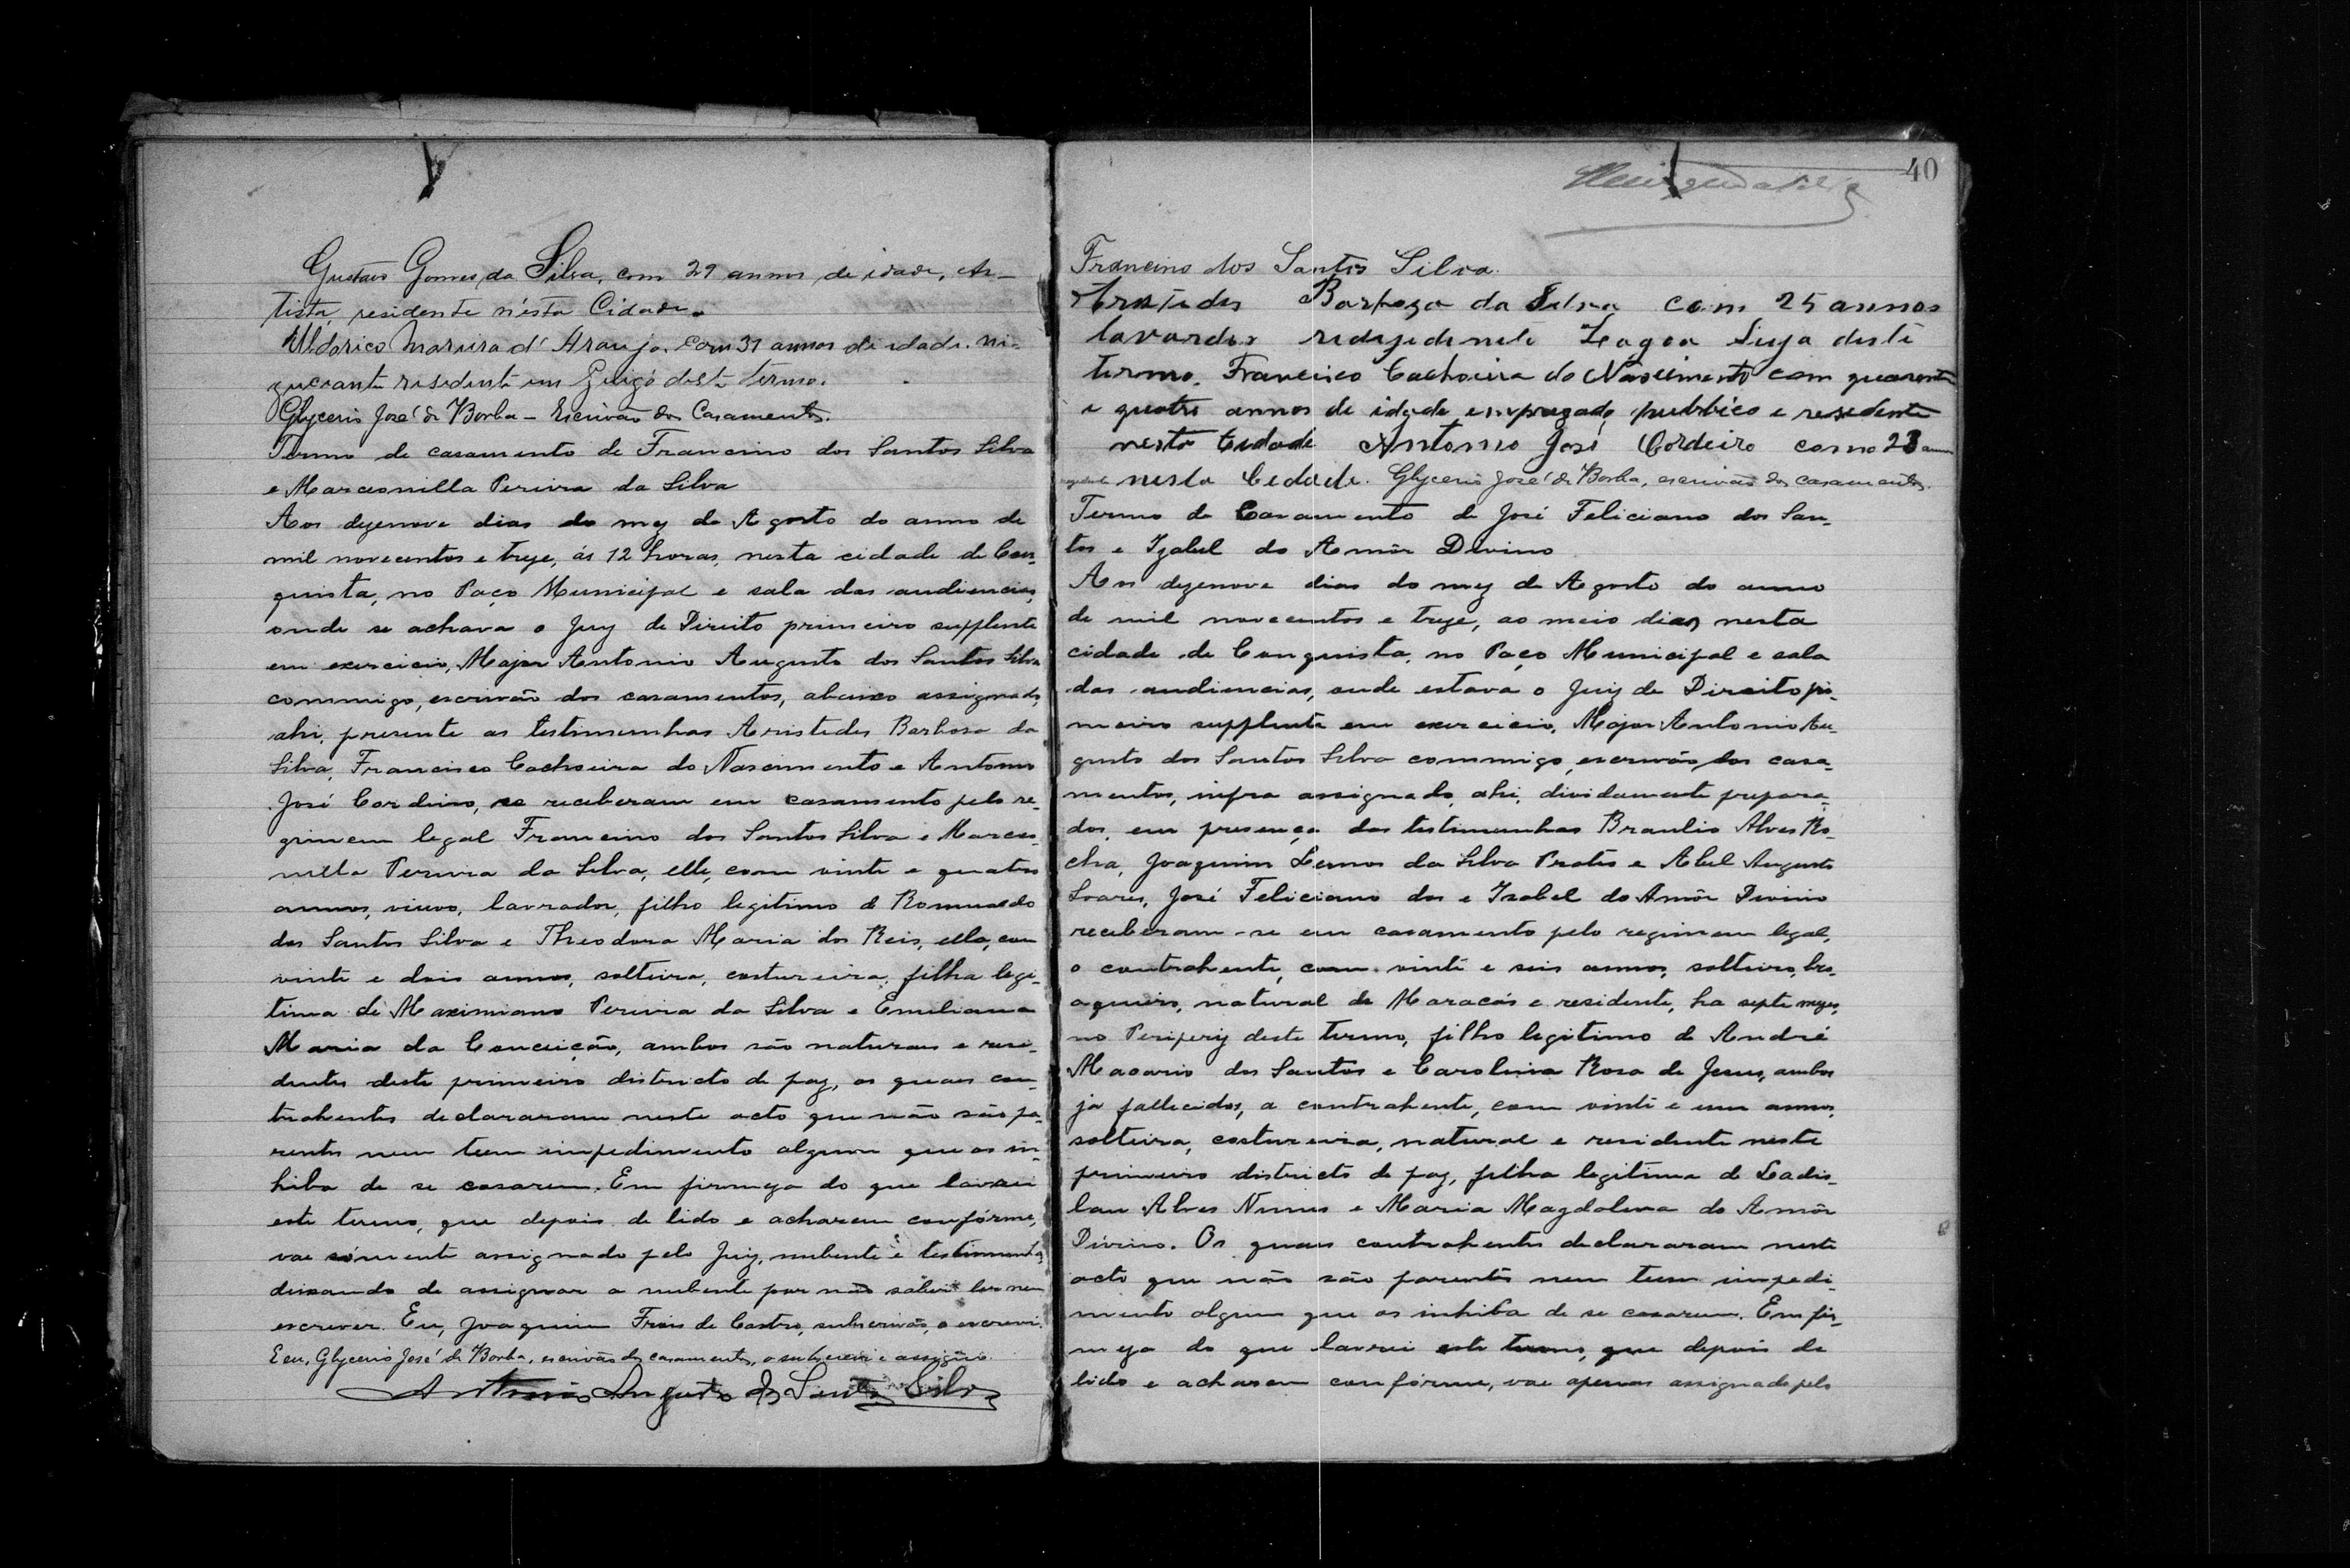 Gustavo Gomes da Silva, com 29 annos de idade, Ar-
tista, residente n'esta Cidade.
Uldorico Moreira d'Araujo, com 31 annos de idade. ni-
guciante residente em Guigó deste termo.
Glycerio José de Borba - Escrivão dos Casamentos.
Termo de casamento de Francino dos Santos Silva
e Marcionilla Pereira da Silva
Aos dezenove dias do mez de Agosto do anno de
mil novecentos e treze, ás 12 horas, nesta cidade de Con-
quista, no Paço Municipal e sala das audiencias,
onde se achava o Juiz de Direito primeiro supplente
em exercicio, Major Antonio Augusto dos Santos Silva
commigo, escrivão dos casamentos, abaixo assignado,
ahi, presente as testimunhas Aristides Barbosa da
Silva, Francisco Cachoeira do Nascimento e Antonio
José Cordeiro, se receberam em casamento pelo re-
gimem legal Francino dos Santos Silva e Marcio-
nilla Pereira da Silva, elle, com vinte e quatro
annos, viuvo, lavrador, filho legitimo de Romualdo
dos Santos Silva e Theodora Maria dos Reis, ella, com
vinte e dois annos, solteira, costureira, filha legi-
tima de Maximiano Pereira da Silva e Emiliana
Maria da Conceição, ambos são naturaes e resi-
dentes deste primeiro districto de paz, os quaes con-
trahentes declararam neste acto que não são pa-
rentes nem teem impedimento algum que os in-
hiba de se casarem. Em firmeza do que lavrei
este termo, que depois de lido e acharem confórme,
vae sómente assignado pelo Juiz, nubente e testimunhas,
deixando de assignar a nubente por não saber ler nem
escrever. Eu, Joaquim Fróis de Castro, subscrivão, o escrevi.
E eu, Glycerio José de Borba, escrivão dos casamentos, o subscrevi e assigno.
Antonio Augusto dos Santos Silva
40
Francino dos Santos Silva.
Aristides Barboza da Silva com 25 annos
lavardor redezedenete Lagoa Suja deste
termo. Francisco Cachoeira do Nascimento com quarenta
e quatro annos de idade empregado publico e resedente
nesta Cidade Antonio José Cordeiro com 23 annos
nesta Cedade. Glycerio José de Borba, escrivão dos casamentos.
Termo de Casamento de José Feliciano dos San-
tos e Izabel do Amôr Divino
Aos dezenove dias do mez de Agosto do anno
de mil novecentos e treze, ao meio dia, nesta
cidade de Conquista, no Paço Municipal e sala
das audiencias, onde estava o Juiz de Direito pri-
meiro supplente em exercicio, Major Antonio Au-
gusto dos Santos Silva commigo, escrivão dos casa-
mentos, infra assignado, ahi, dividamente prepara-
dos, em presença das testimunhas Braulio Alves Ro-
cha, Joaquim Lemos da Silva Prates e Abel Augusto
Soares, José Feliciano dos e Izabel do Amôr Divino
receberam-se em casamento pelo regimem legal,
o contrahente, com vinte e seis annos, solteiro, bra-
aqueiro, natural de Maracás e residente, ha septe mezes,
no Peripery deste termo, filho legitimo de André
Macario dos Santos e Carolina Rosa de Jesus, ambos
ja fallecidos, a contrahente, com vinte e um annos,
solteira, costureira, natural e residente neste
primeiro districto de paz, filha legitima de Ladis-
lau Alves Nunes e Maria Magdalena do Amôr
Divino. Os quaes contrahentes declararam neste
acto que não são parentes nem teem impedi-
mento algum que os inhiba de se casarem. Em fir-
meza do que lavrei este termo, que depois de
lido e acharem confórme, vae apenas assignado pelo